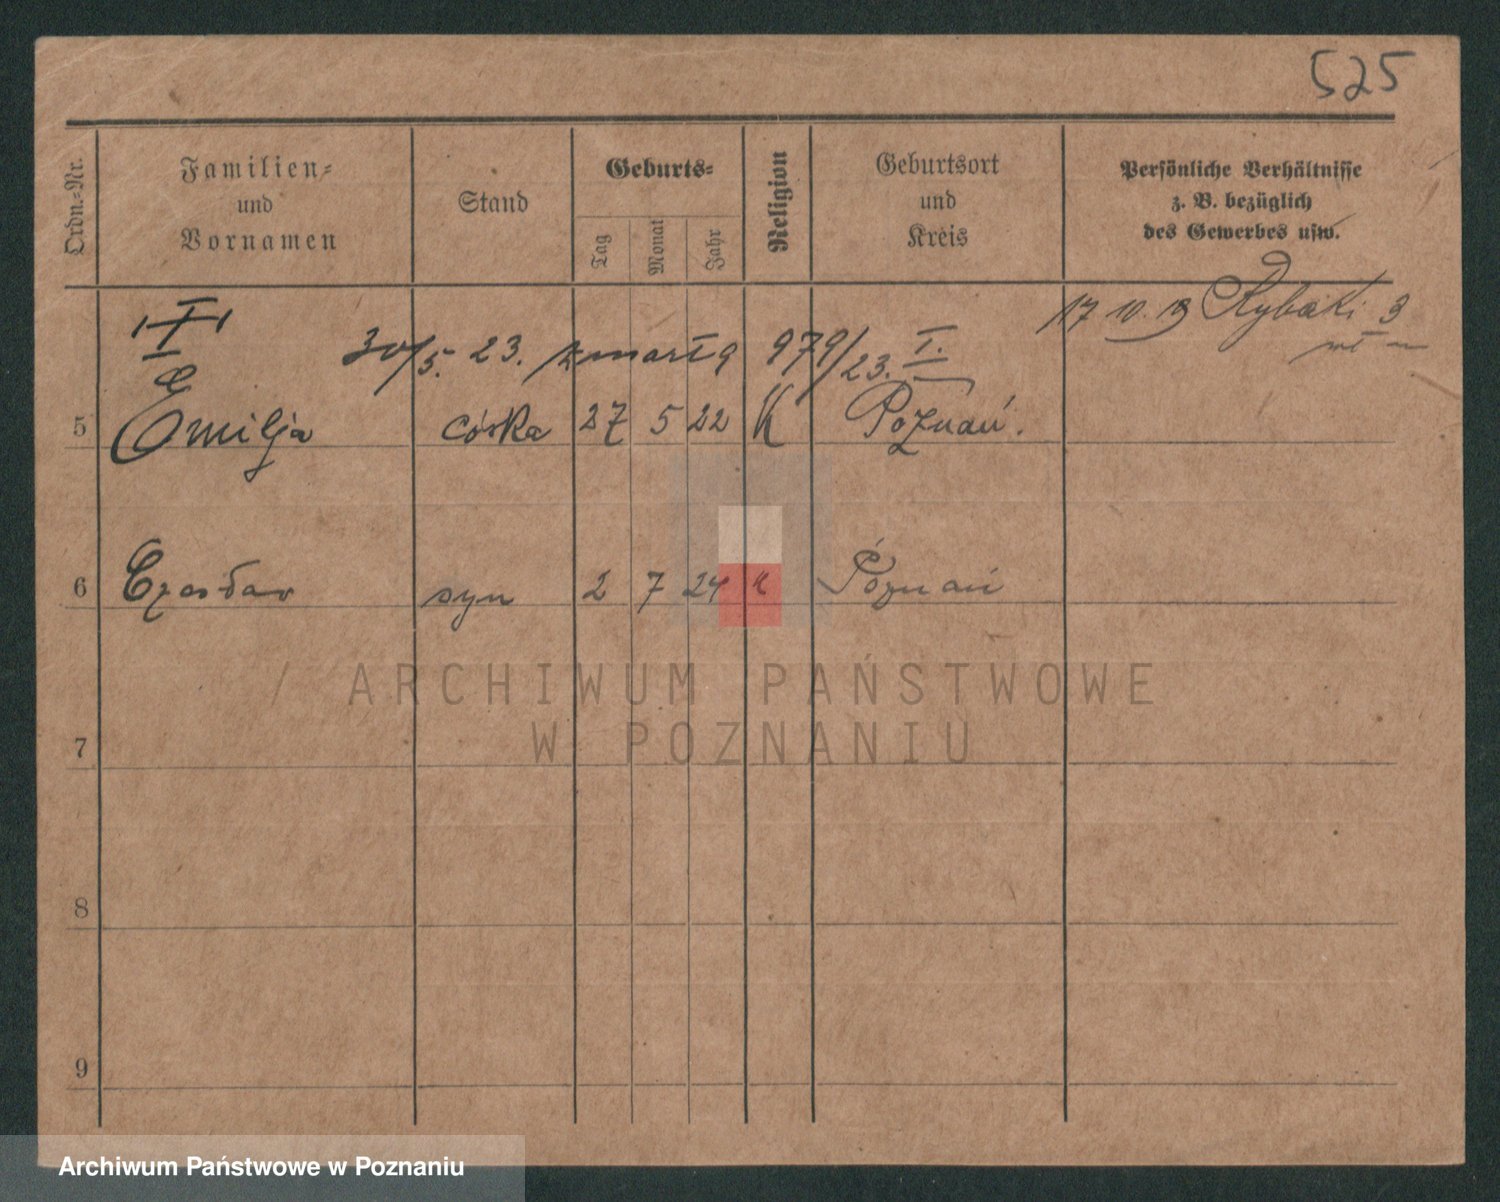 525
Ordn.-Nr.
Familien-
und
Vornamen
Stand
Geburts-
Tag
Monat
Jahr
Religion
Geburtsort
und
Kreis
Persönliche Verhältnisse
z. B. bezüglich
des Gewerbes usw.
17 10. 19 Rybaki 3
30/5. 23. zmarła 979/23. I.
5 Emilja córka 27 5 22 K Poznań.
6 Czesław syn 2 7 24 K Poznań
7
8
9
ARCHIWUM PAŃSTWOWE
W POZNANIU
Archiwum Państwowe w Poznaniu